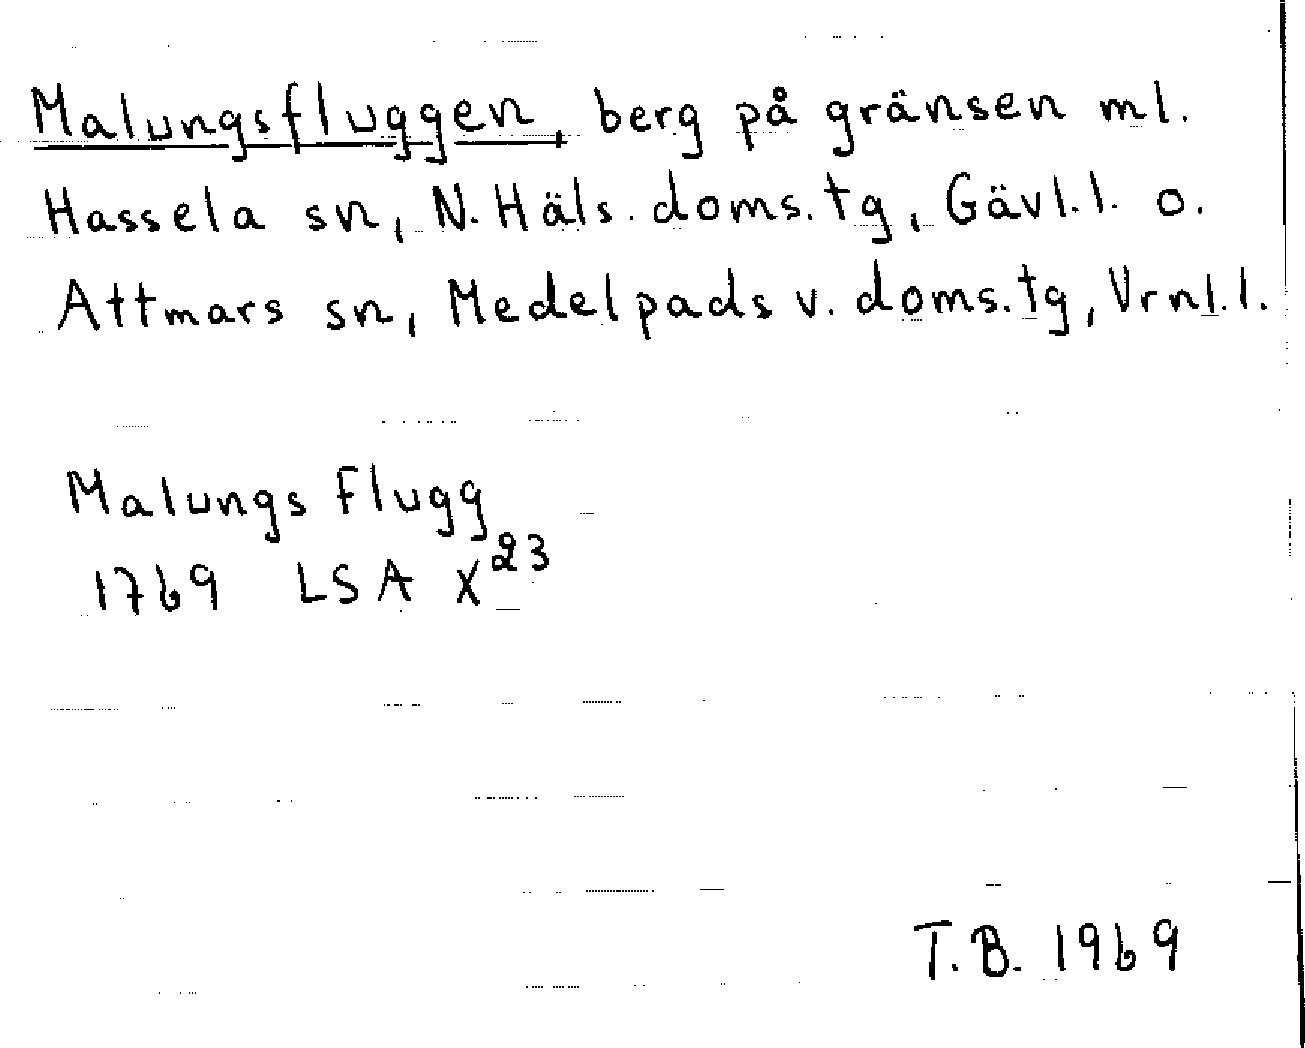 Malungsfluggen, berg på gränsen ml.
Hassela sn, N. Häls. doms.tg, Gävl.l. o.
Attmars sn, Medelpads v. doms.tg, Vrnl.l.
Malungs Flugg
1769 LSA X²³
T.B. 1969